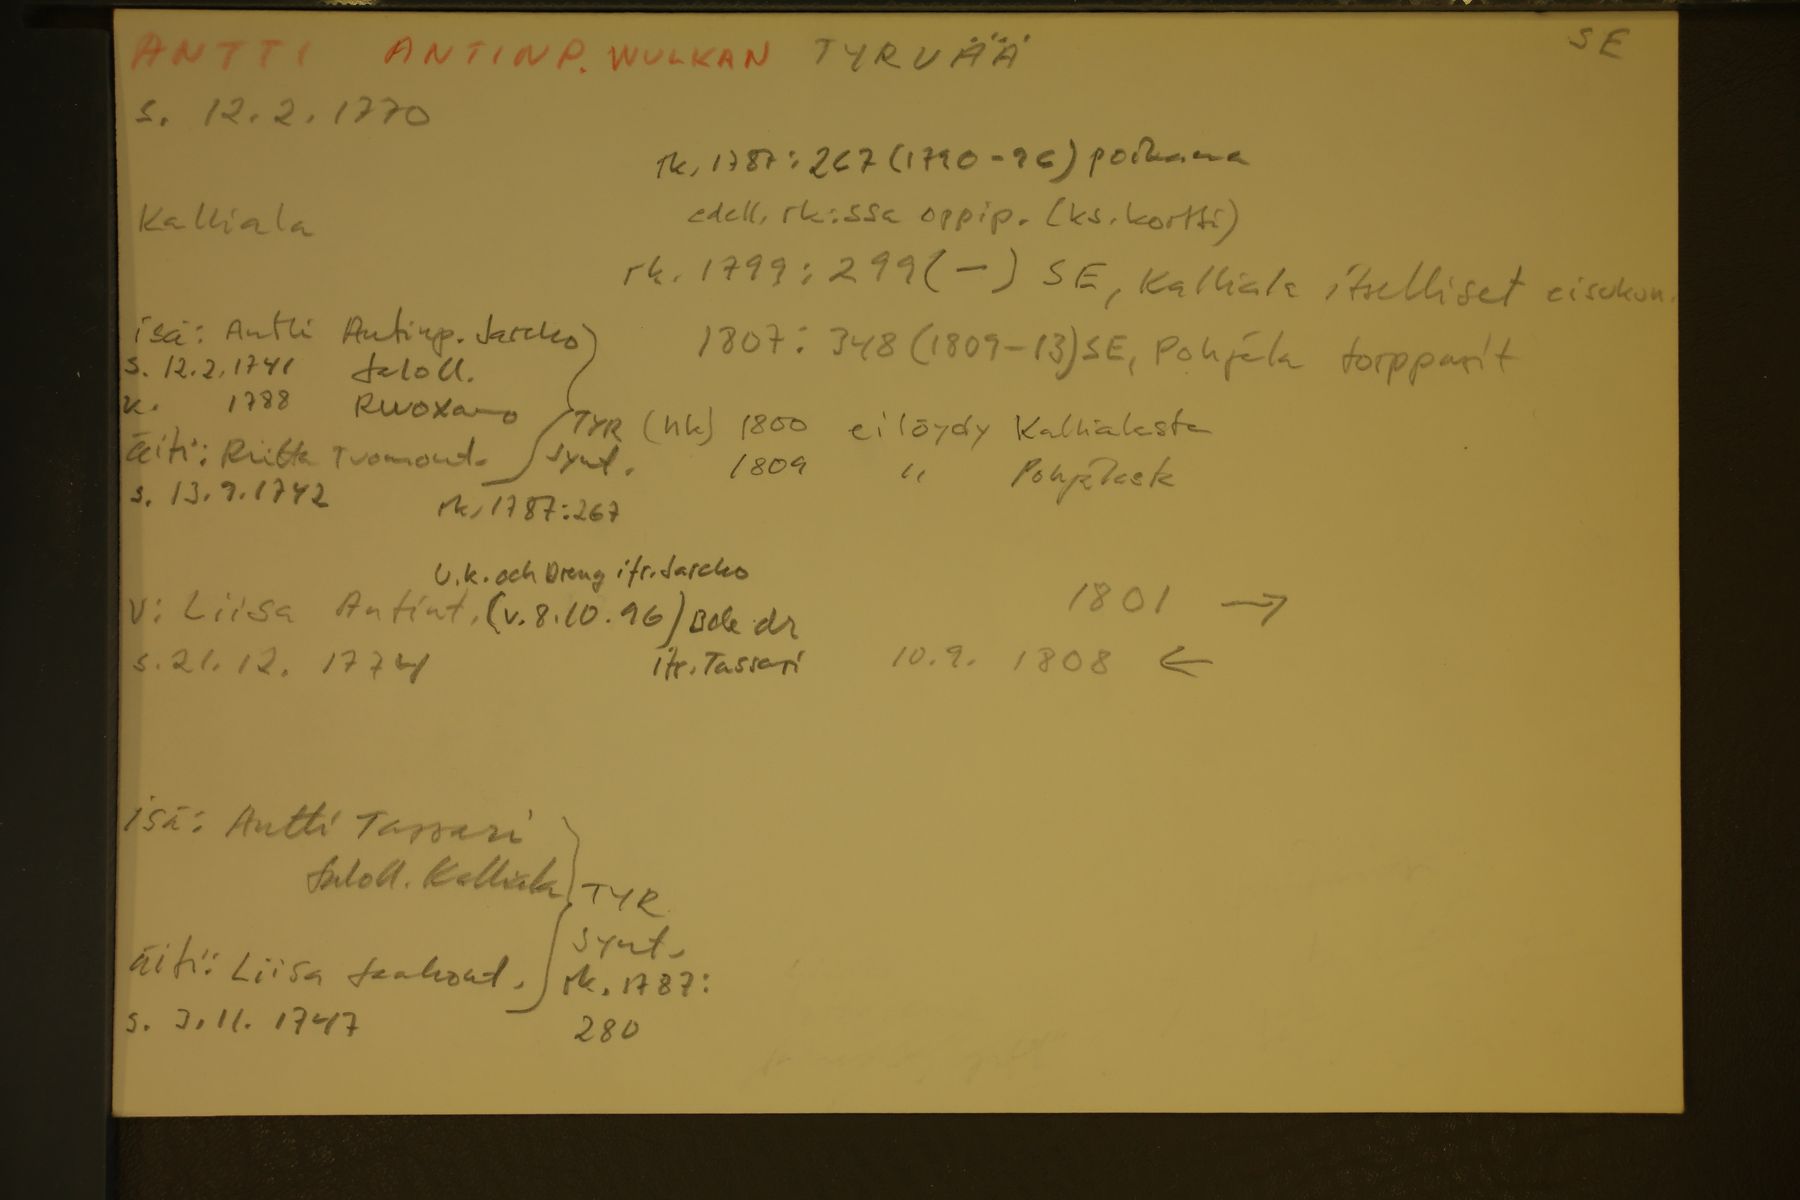 ANTTI ANTINP. WULKAN TYRVÄÄ SE
s. 12.2.1770
rk. 1787: 267 (1790-96) poikana
Kalliala
edell. rk:ssa oppip. (ks. kortti)
rk. 1799: 299 (-) SE, Kalliala itselliset
isä: Antti Antinp. Jascko
1807: 348 (1809-13) SE, Pohjala torpparit
s. 12.2.1741 taloll.
k. 1788 Ruoxamo
TYR (hk) 1800 ei löydy Kallialasta
äiti: Riitta Tuomont. synt.
1809 " Pohjalasta
s. 13.9.1742
rk. 1787: 267
U.k. och Dreng ifr. Jascko
v: Liisa Antint. (v. 8.10.96) Bde dr
1801 →
s. 21.12. 1774 ifr. Tassari
10.9. 1808 ←
isä: Antti Tassari
taloll. Kalliala
TYR
synt.
äiti: Liisa Jaakont.
rk. 1787:
s. 3.11. 1747
280